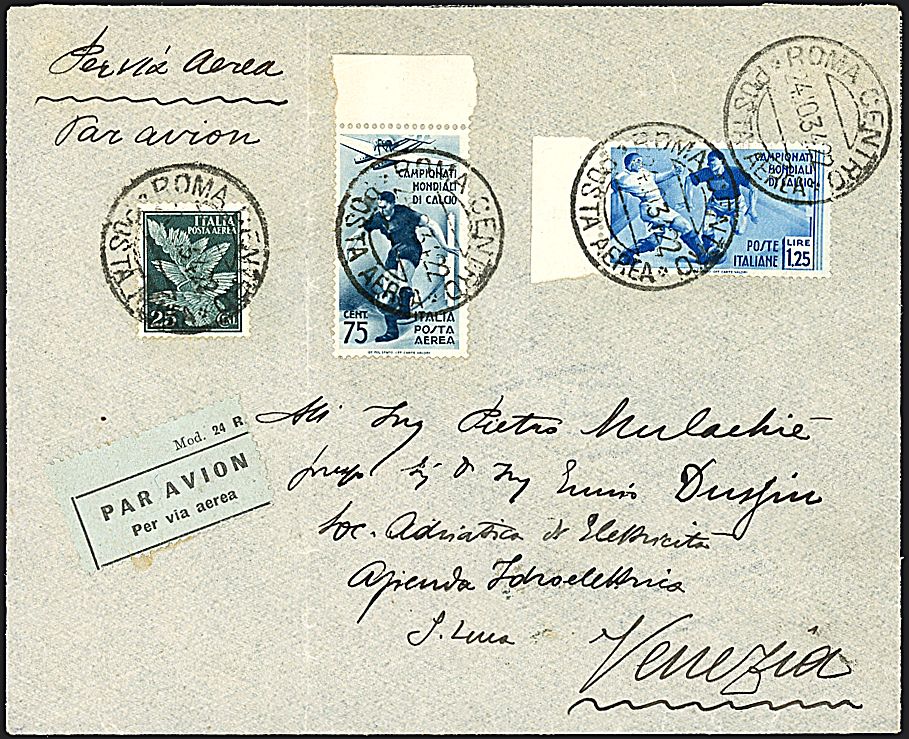 Per via Aerea
Par avion
ROMA CENTRO
POSTA AEREA
ITALIA
POSTA AEREA
25 CENT.
ROMA CENTRO
POSTA AEREA
CAMPIONATI
MONDIALI
DI CALCIO
CENT.
75
ITALIA
POSTA
AEREA
ROMA CENTRO
POSTA AEREA
CAMPIONATI
MONDIALI
DI CALCIO
POSTE
ITALIANE
LIRE
1,25
ROMA CENTRO
POSTA AEREA
Mod. 24 R.
PAR AVION
Per via aerea
Ing Pietro
Ing Ennio
Soc. Adriatica di Elettricità
Azienda Idroelettrica
S. Luca
Venezia